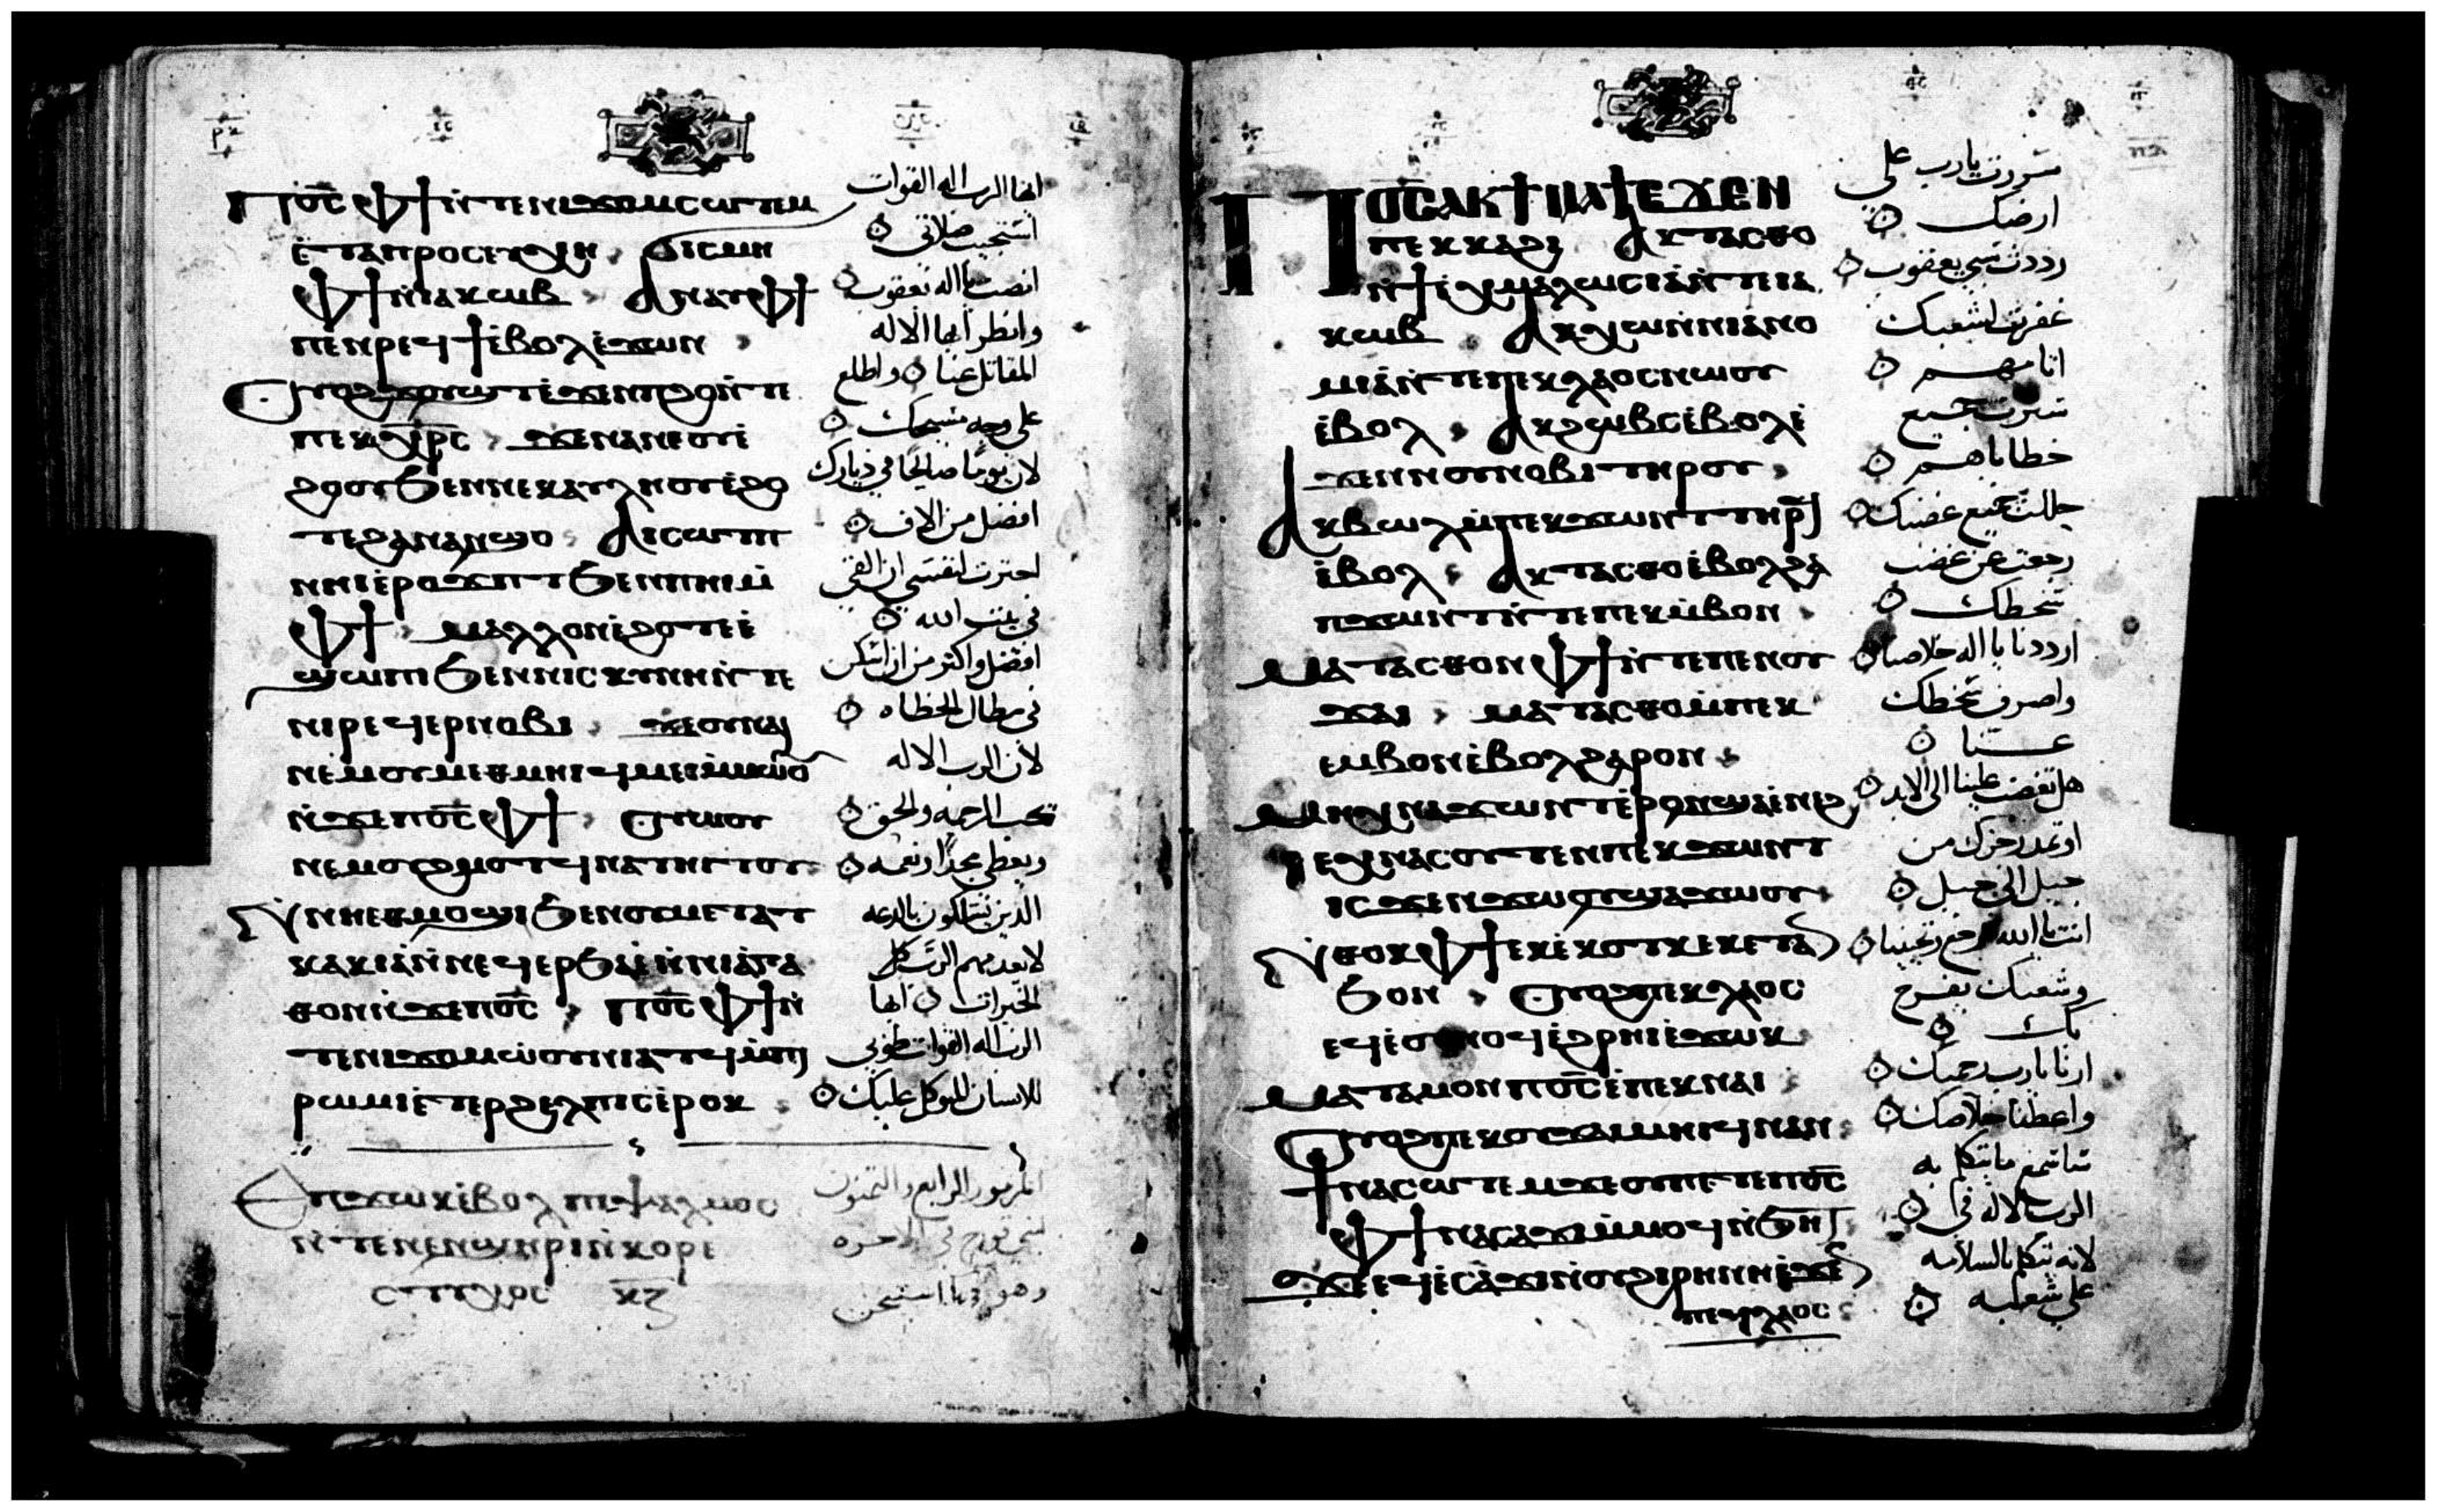 ⲡϭⲟ̅ⲥ̅ ⲫϯ ⲛ̀ⲧⲉⲛⲓϫⲟⲙ ⲥⲱⲧⲉⲙ
ⲉ̀ⲧⲁⲡⲣⲟⲥⲉⲩⲭⲏ ϭⲓⲥⲙⲏ
ⲫϯ ⲛ̀ⲓⲁⲕⲱⲃ ⲁⲛⲁⲩ ⲫϯ
ⲡⲉⲛⲣⲉϥϯ ⲉ̀ⲃⲟⲗ ⲉ̀ϫⲱⲛ
ⲟⲩⲟϩ ϫⲟⲩϣⲧ ⲉ̀ϫⲉⲛ ⲡϩⲟ ⲛ̀ⲧⲉ
ⲡⲉⲕⲭⲣ̅ⲥ̅ ϫⲉ ⲛⲁⲛⲉ ⲟⲩⲉ̀
ϩⲟⲟⲩ ϧⲉⲛ ⲛⲉⲕⲁⲩⲗⲏⲟⲩ ⲉ̀ϩⲟ
ⲧⲉ ϩⲁⲛⲁⲛϣⲟ ⲁⲓⲥⲱⲧⲡ
ⲛⲏⲓ ⲉ̀ⲣⲟϫⲡⲧ ϧⲉⲛ ⲡⲏⲓ ⲙ̀
ⲫϯ ⲙⲁⲗⲗⲟⲛ ⲉ̀ϩⲟⲧⲉ ⲉ̀
ϣⲱⲡⲓ ϧⲉⲛ ⲛⲓⲥⲕⲩⲛⲏ ⲛ̀ⲧⲉ
ⲛⲓⲣⲉϥⲉⲣⲛⲟⲃⲓ ϫⲉ ⲟⲩⲛⲁⲓ
ⲛⲉⲙ ⲟⲩⲙⲉⲑⲙⲏⲓ ϥⲙⲉⲓ ⲙ̀ⲙⲱⲟⲩ
ⲛ̀ϫⲉ ⲡϭⲟ̅ⲥ̅ ⲫϯ ⲟⲩⲱⲟⲩ
ⲛⲉⲙ ⲟⲩϩⲙⲟⲧ ⲉϥⲛⲁⲧⲏⲓⲧⲟⲩ
ⲛ̀ⲛⲏⲉⲑⲙⲟϣⲓ ϧⲉⲛ ⲟⲩⲙⲉⲧⲁⲧ
ⲕⲁⲕⲓⲁ ⲛ̀ⲛⲉϥⲉⲣϧⲁⲉ̀ ⲛ̀ⲛⲓⲁ̀ⲅⲁ
ⲑⲟⲛ ⲛ̀ϫⲉ ⲡϭⲟ̅ⲥ̅ ⲡϭⲟ̅ⲥ̅ ⲫϯ ⲛ̀
ⲧⲉ ⲛⲓϫⲟⲙ ⲱ̀ⲟⲩⲛⲓⲁⲧϥ ⲙ̀ⲡⲓ
ⲣⲱⲙⲓ ⲉ̀ⲧⲉⲣϩⲉⲗⲡⲓⲥ ⲉ̀ⲣⲟⲕ
ⲉⲡϫⲱⲕ ⲉ̀ⲃⲟⲗ ⲡⲉⲯⲁⲗⲙⲟⲥ
ⲛ̀ⲧⲉ ⲛⲉⲛϣⲏⲣⲓ ⲛ̀ⲕⲟⲣⲉ
ⲥⲧⲩⲭⲟⲥ ⲕ̅ⲍ̅
ايها الرب اله القوات
استجيب صلاتي
انصت يا اله يعقوب
وانظر ايها الاله
المقاتل عنا واطلع
على وجه مسيحك
لان يوما صالحا في ديارك
افضل من الاف
اخترت لنفسي ان القى
في بيت الله
افضل واكثر من ان اسكن
في مظال الخطاه
لان الرب الاله
يحب الرحمه والحق
ويعطي مجدا ونعمه
الذين يسلكون بالدعه
لا يعدمهم الرب كل
الخيرات ايها
الرب اله القوات طوبى
للانسان المتوكل عليك
المزمور الرابع والثمنون
لبني قورح في الاخره
ⲡϭⲟ̅ⲥ̅ ⲁⲕϯⲙⲁϯ ⲉϫⲉⲛ
ⲡⲉⲕⲕⲁϩⲓ ⲁⲕⲧⲁⲥⲑⲟ
ⲛ̀ϯⲉ̀ⲭⲙⲁⲗⲱⲥⲓⲁ̀ ⲛ̀ⲧⲉ ⲓⲁ
ⲕⲱⲃ ⲁⲕⲭⲱ ⲛ̀ⲛⲓⲁ̀ⲛⲟ
ⲙⲓⲁ̀ ⲛ̀ⲧⲉ ⲡⲉⲕⲗⲁⲟⲥ ⲛⲱⲟⲩ
ⲉ̀ⲃⲟⲗ ⲁⲕϩⲱⲃⲥ ⲉ̀ⲃⲟⲗ ⲉ̀
ϫⲉⲛ ⲛⲟⲩⲛⲟⲃⲓ ⲧⲏⲣⲟⲩ
ⲁⲕⲃⲱⲗ ⲙ̀ⲡⲉⲕϫⲱⲛⲧ ⲧⲏⲣϥ
ⲉ̀ⲃⲟⲗ ⲁⲕⲧⲁⲥⲑⲟ ⲉ̀ⲃⲟⲗ ϩⲁ
ⲡϫⲱⲛⲧ ⲛ̀ⲧⲉ ⲡⲉⲕⲙ̀ⲃⲟⲛ
ⲙⲁⲧⲁⲥⲑⲟⲛ ⲫϯ ⲛ̀ⲧⲉ ⲡⲉⲛⲟⲩ
ϫⲁⲓ ⲙⲁⲧⲁⲥⲑⲟ ⲙ̀ⲡⲉⲕ
ⲉⲙⲃⲟⲛ ⲉ̀ⲃⲟⲗ ϩⲁⲣⲟⲛ
ⲙⲏ ⲭⲛⲁϫⲱⲛⲧ ⲉ̀ⲣⲟⲛ ϣⲁ ⲉ̀ⲛⲉϩ
ⲓⲉ ⲭⲛⲁⲥⲟⲩⲧⲉⲛ ⲡⲉⲕϫⲱⲛⲧ
ⲓⲥϫⲉⲛ ϫⲱⲟⲩ ϣⲁ ϫⲱⲟⲩ
ⲛ̀ⲑⲟⲕ ⲫϯ ⲉⲕⲉ̀ⲕⲟⲧⲕ ⲉⲕⲉ̀ⲧⲁⲛ
ϧⲟⲛ ⲟⲩⲟϩ ⲡⲉⲕⲗⲁⲟⲥ
ⲉϥⲉ̀ⲟⲩⲛⲟϥ ⲉ̀ϩⲣⲏⲓ ⲉ̀ϫⲱⲕ
ⲙⲁⲧⲁⲙⲟⲛ ⲡϭⲟ̅ⲥ̅ ⲉ̀ⲡⲉⲕⲛⲁⲓ
ⲟⲩⲟϩ ⲡⲉⲕⲟⲩϫⲁⲓ ⲙⲏⲓϥ ⲛⲁⲛ
ϯⲛⲁⲥⲱⲧⲉⲙ ϫⲉ ⲟⲩ ⲡⲉⲧⲉ ⲡϭⲟ̅ⲥ̅
ⲫϯ ⲛⲁⲥⲁϫⲓ ⲙ̀ⲙⲟϥ ⲛ̀ϧⲏⲧ
ϫⲉ ⲉϥⲉ̀ⲥⲁϫⲓ ⲛ̀ⲟⲩϩⲓⲣⲏⲛⲏ ⲉ̀ϫⲉⲛ
ⲡⲉϥⲗⲁⲟⲥ
سررت يا رب على
ارضك
رددت سبي يعقوب
غفرت لشعبك
اثامهم
سترت جميع
خطاياهم
حللت جميع غضبك
رجعت عن غضب
سخطك
ارددنا يا اله خلاصنا
واصرف سخطك
عنا
هل تغضب علينا الى الابد
او تمدد رجزك من
جيل الى جيل
انت يا الله ترجع وتحيينا
وشعبك يفرح
بك
ارنا يا رب رحمتك
واعطنا خلاصك
ساسمع ما يتكلم به
الرب الاله في
لانه يتكلم بالسلامه
على شعبه